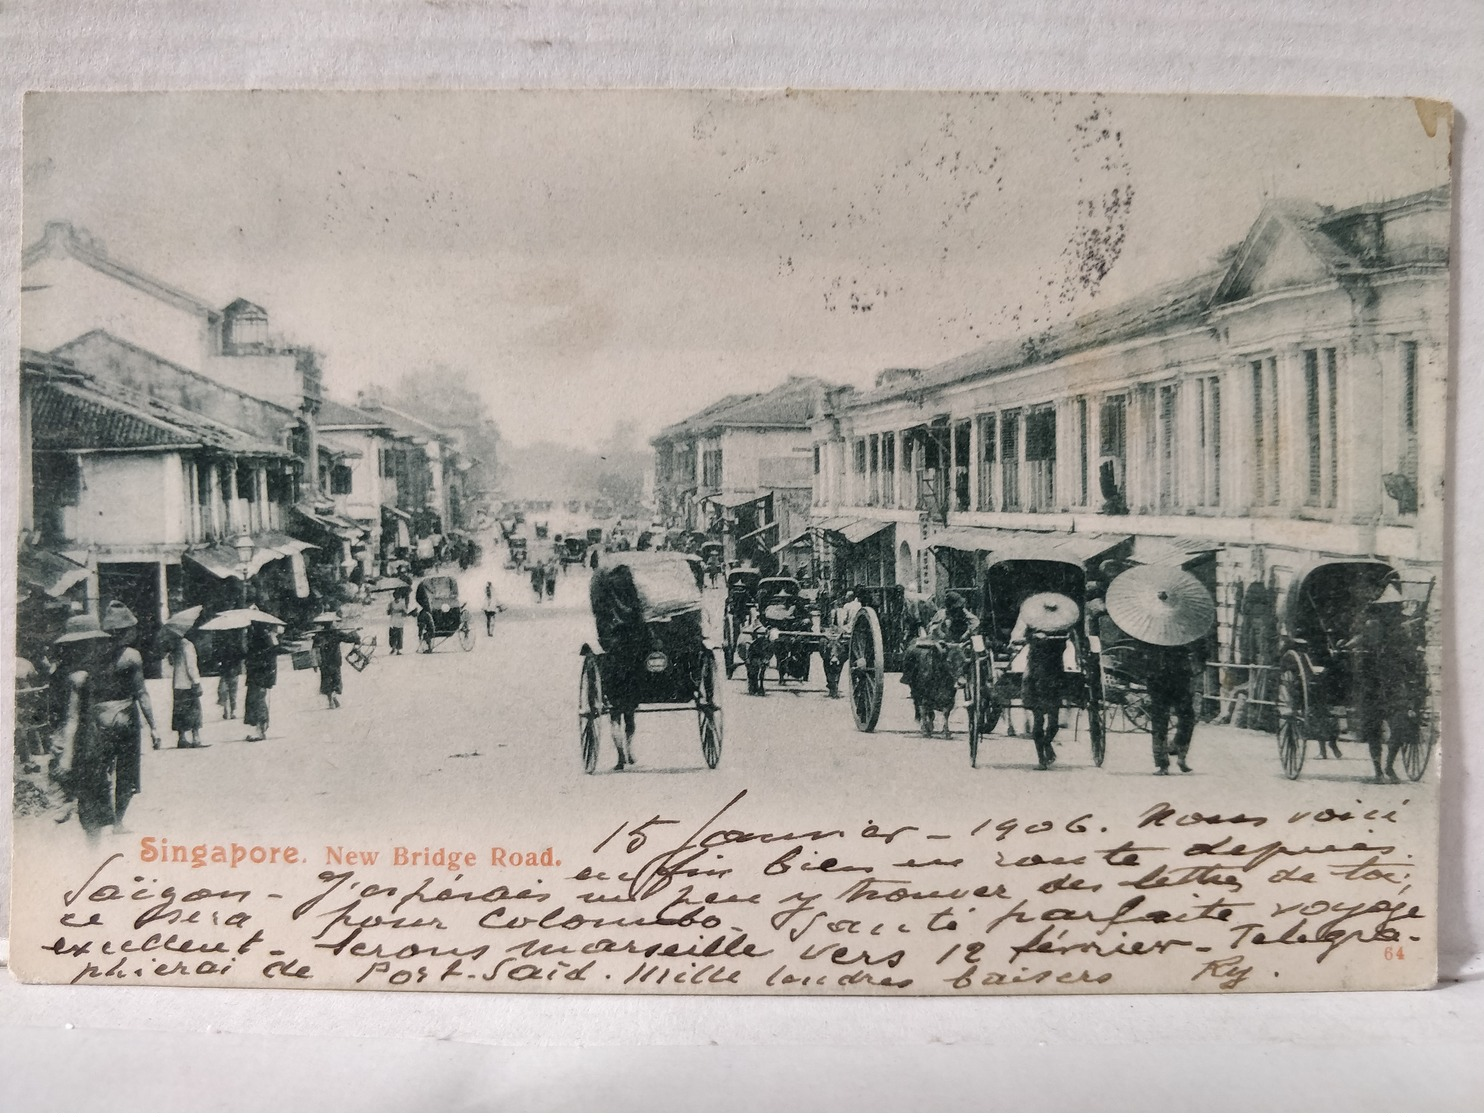 Singapore. New Bridge Road.
15 Janvier - 1906. Nous voici
enfin bien en route depuis
Saïgon - J'espérais un peu y trouver des lettres de toi,
ce sera pour Colombo - Santé parfaite, voyage
excellent - Serons Marseille vers 12 février - Télégra-
phierai de Port-Saïd. Mille tendres baisers Ry.
64